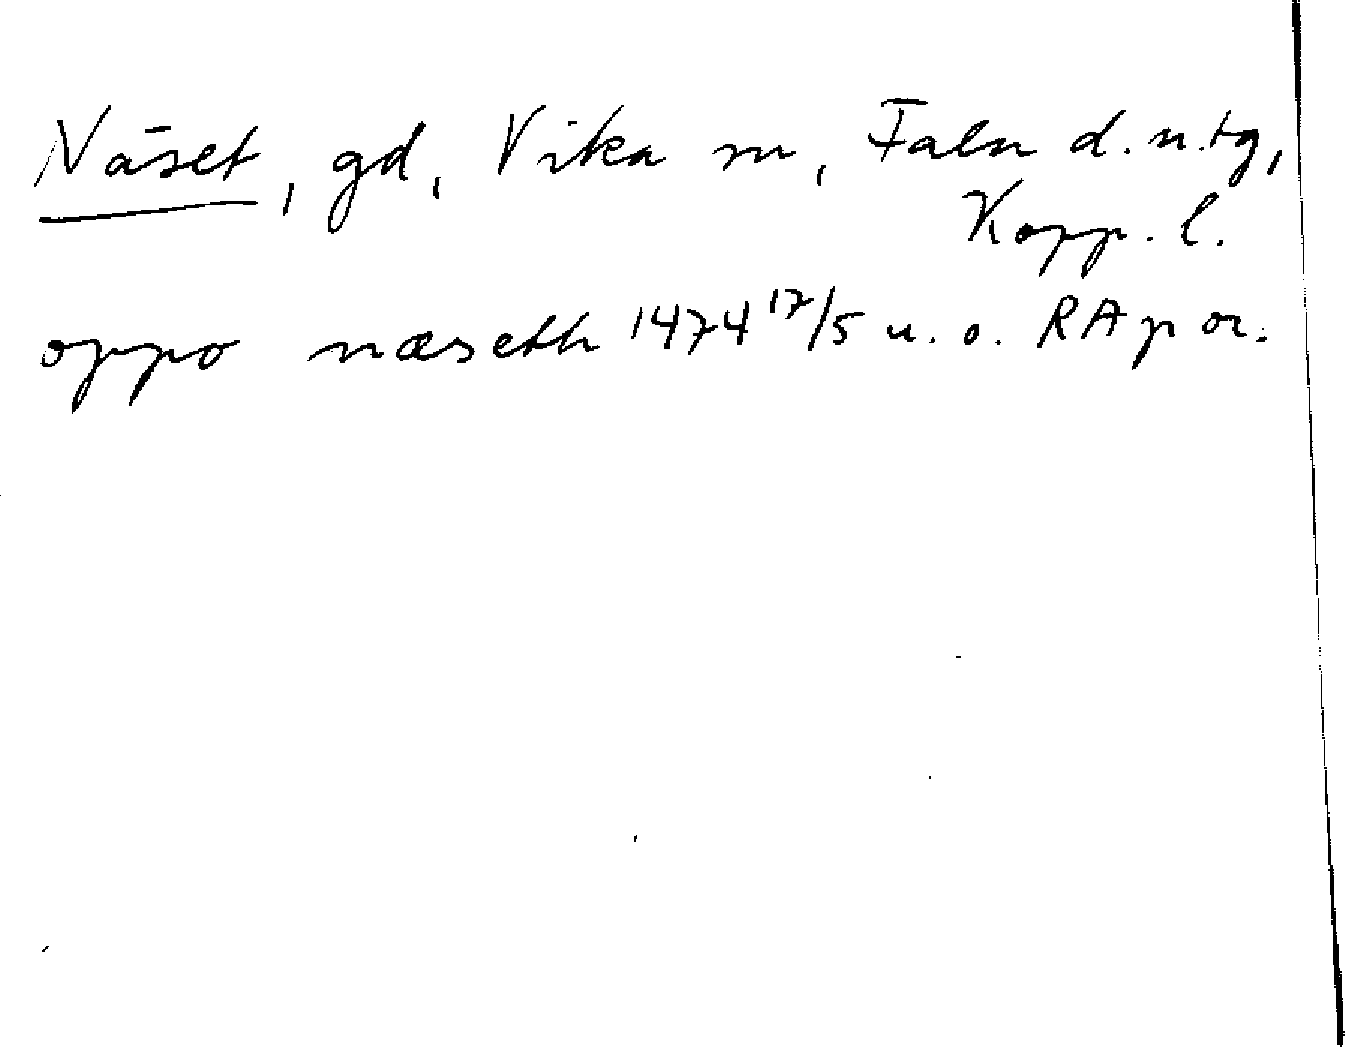 Näset, gd, Vika sn, Falu d.n.tg,
Kopp. l.
oppo næseth 1474 17/5 u. o. RAp or.